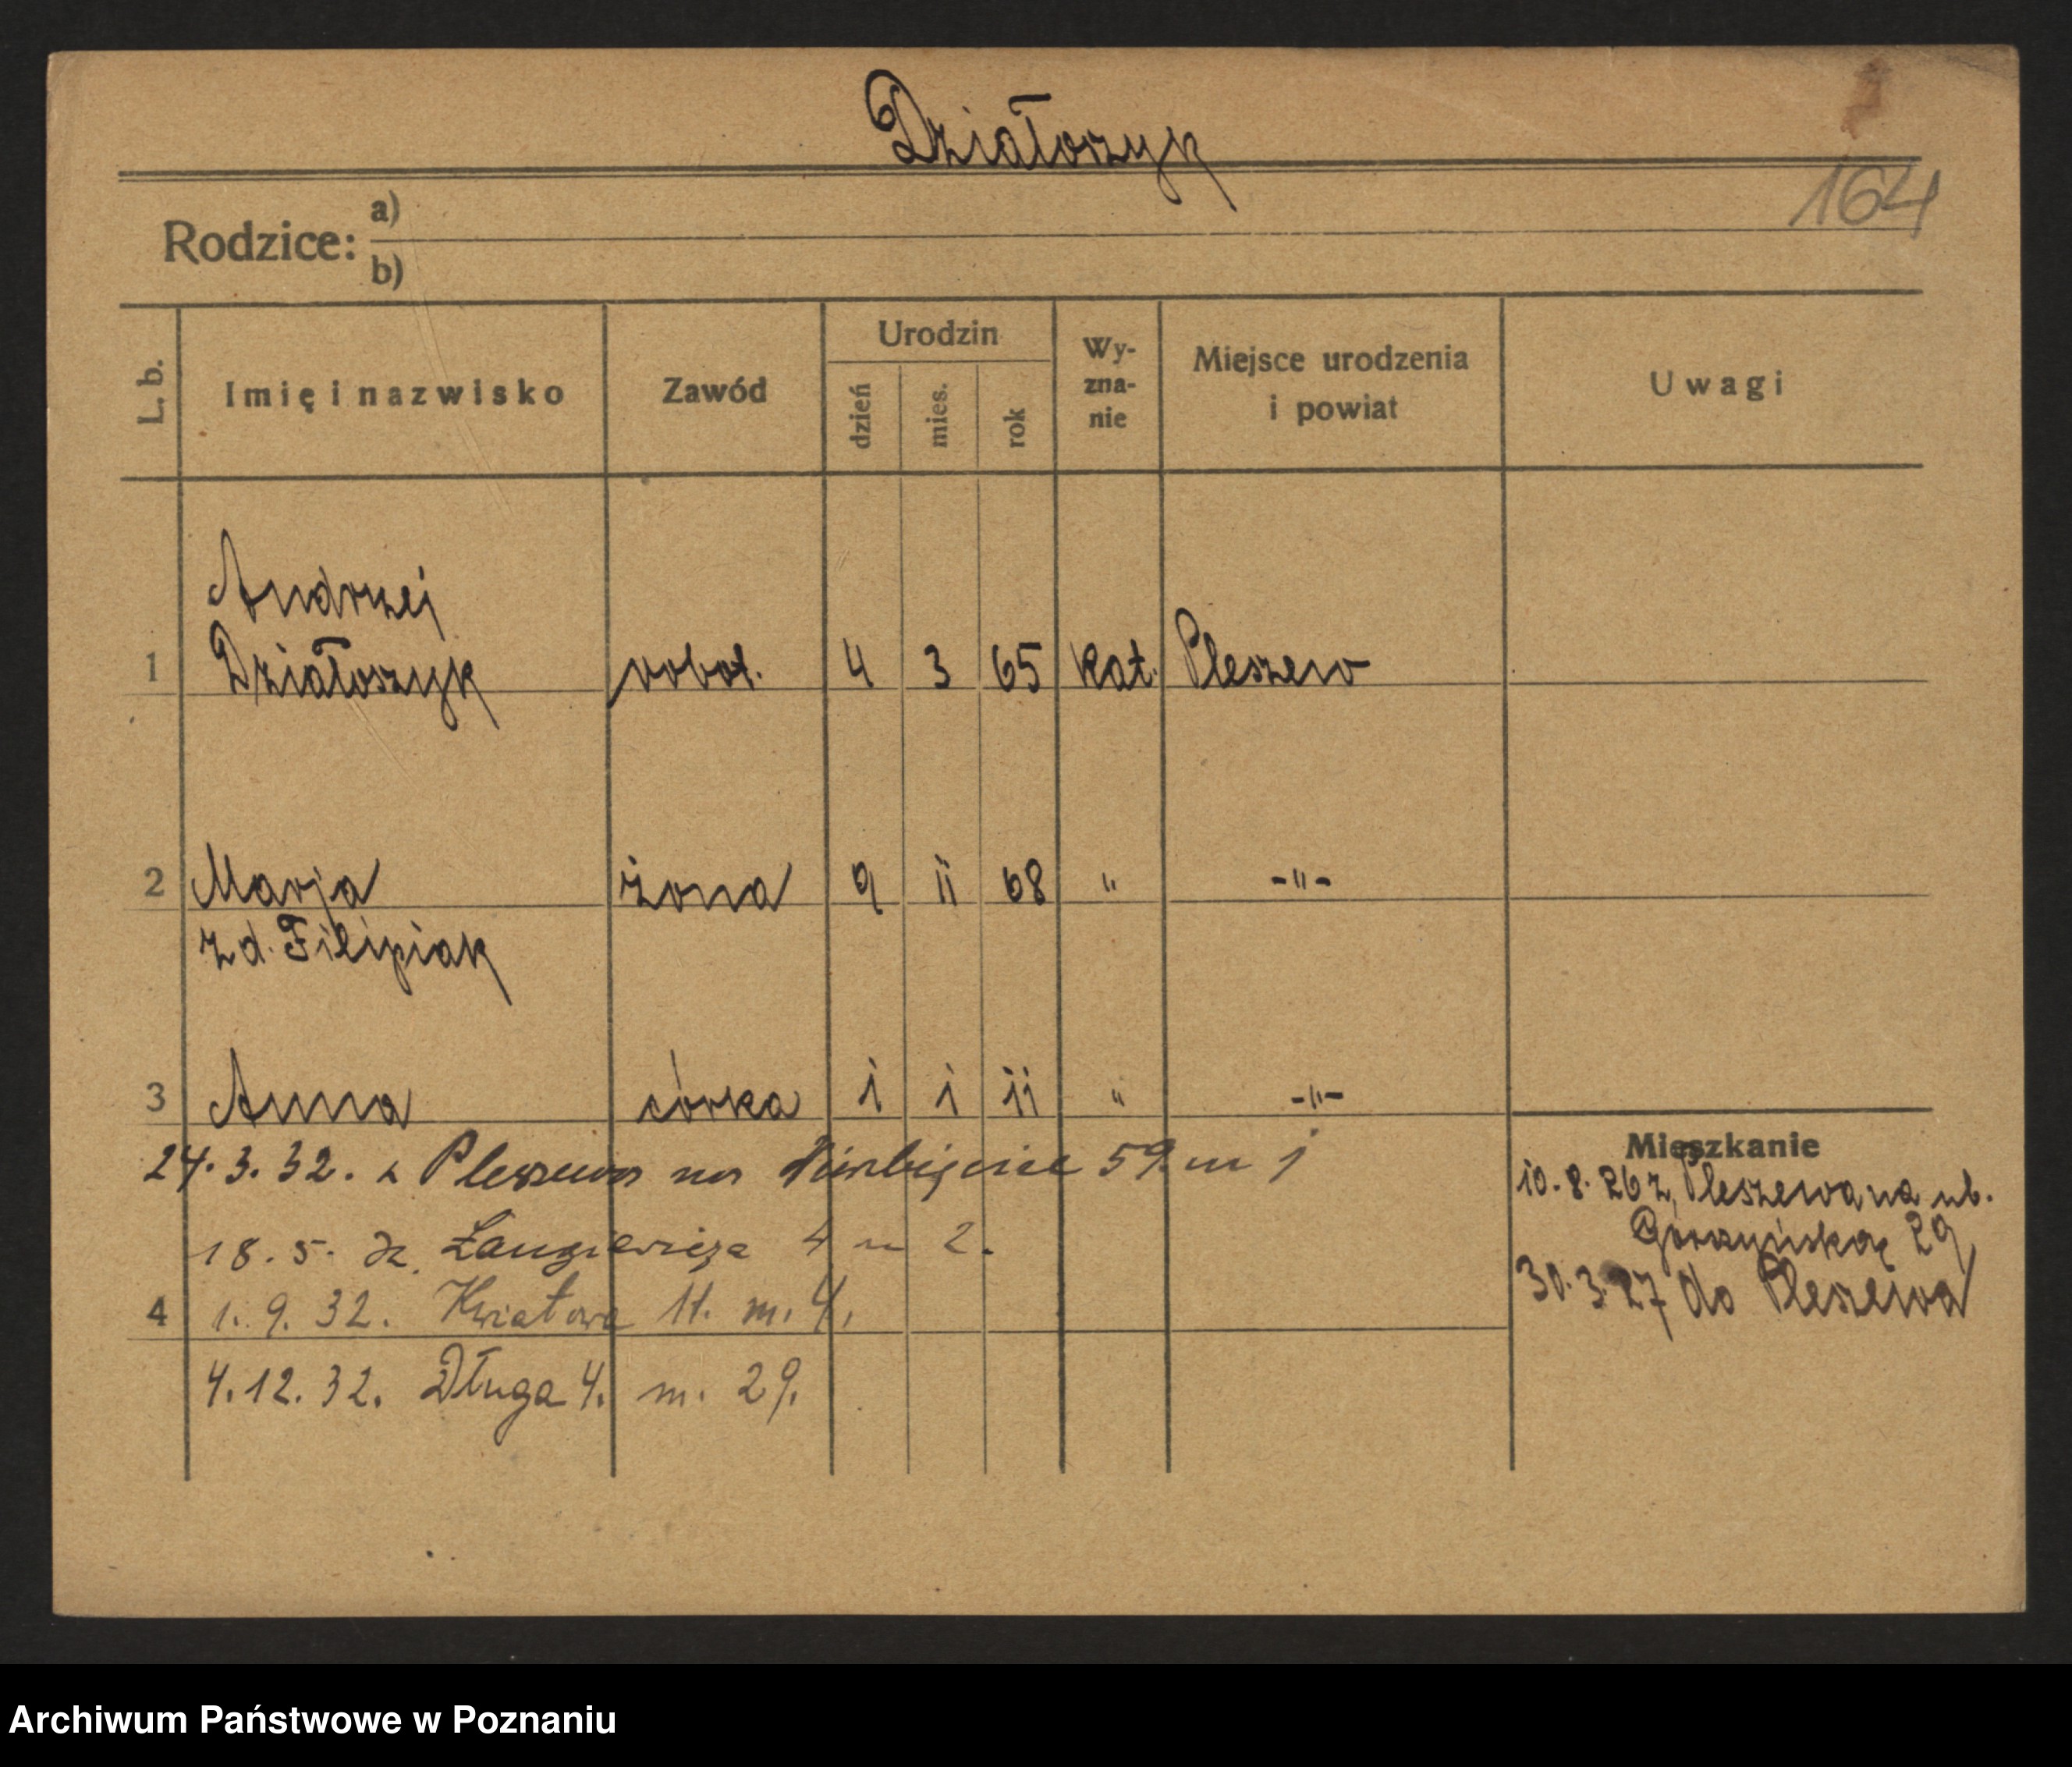 Działoszyk
164
Rodzice: a)
b)
L. b.
Imię i nazwisko
Zawód
Urodzin
dzień
mies.
rok
Wy-
zna-
nie
Miejsce urodzenia
i powiat
Uwagi
Andrzej
1 Działoszyk robot. 4 3 65 kat. Pleszew
2 Marja żona 9 11 68 " -"-
z d. Filipiak
3 Anna córka 1 1 11 " -"-
Mieszkanie
10.8.26 z Pleszewa na ul.
Górczyńską 29
30.3.27 do Pleszewa
24.3.32. z Pleszewa na Wierzbięcice 59 m 1
18.5. 32. Langiewicza 4 m 2.
4 1.9.32. Kwiatowa 11. m. 4.
4.12.32. Długa 4. m. 29.
Archiwum Państwowe w Poznaniu